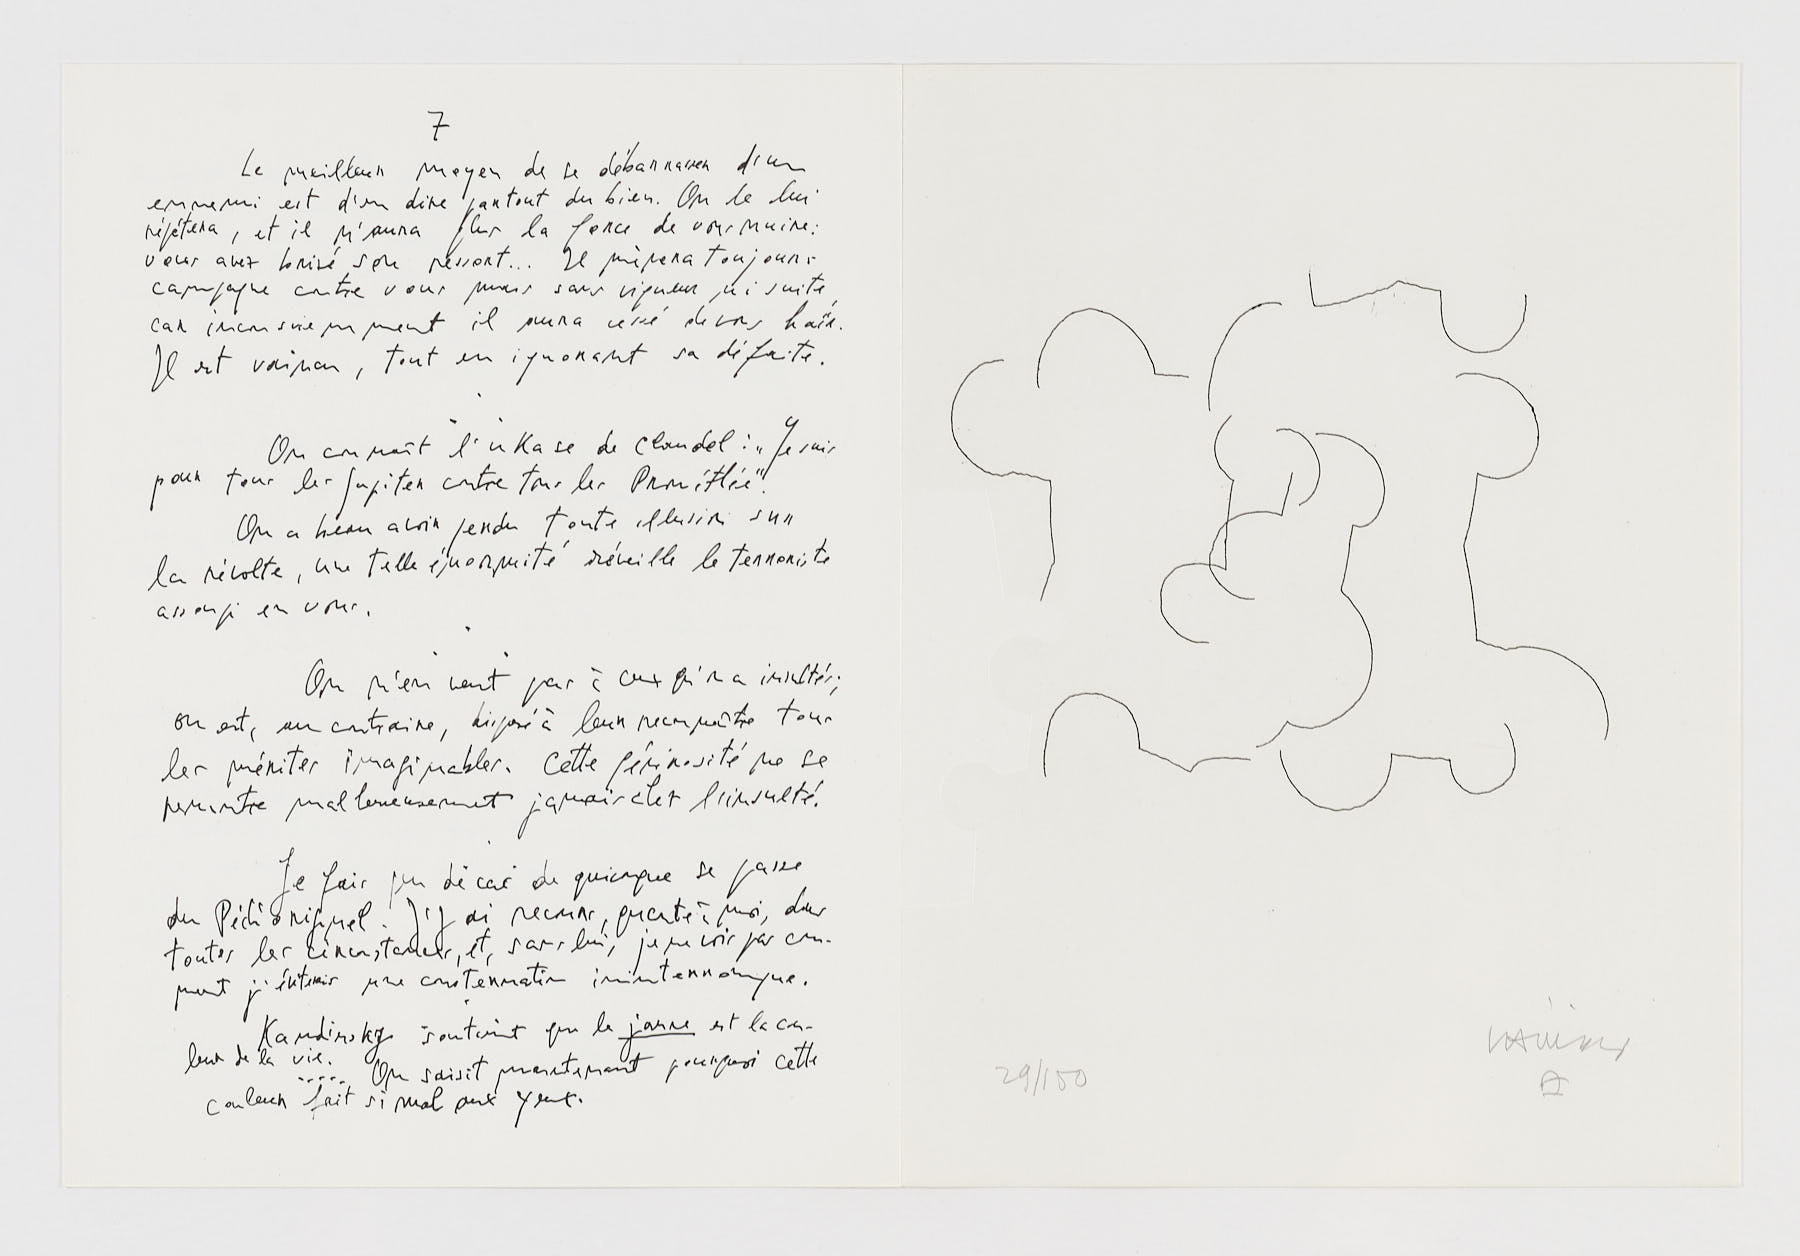 7
Le meilleur moyen de se débarrasser d'un
ennemi est d'en dire partout du bien. On le lui
répétera, et il n'aura plus la force de vous nuire:
vous avez brisé son ressort... Il mènera toujours
campagne contre vous mais sans vigueur ni suite,
car inconsciemment il aura cessé de vous haïr.
Il est vaincu, tout en ignorant sa défaite.
On connaît l'ukase de Claudel: "Je suis
pour tous les Jupiter contre tous les Prométhée".
On a beau avoir perdu toute illusion sur
la révolte, une telle énormité réveille le terroriste
assoupi en vous.
On n'en veut pas à ceux qu'on a insultés;
on est, au contraire, disposé à leur reconnaître tous
les mérites imaginables. Cette générosité ne se
rencontre malheureusement jamais chez l'insulté.
Je fais peu de cas de quiconque se passe
du Péché originel. J'y ai recours, quant à moi, dans
toutes les circonstances, et, sans lui, je ne vois pas com-
ment j'éviterais une consternation ininterrompue.
Kandinsky soutient que le jaune est la cou-
leur de la vie.
..... On saisit maintenant pourquoi cette
couleur fait si mal aux yeux.
29/100